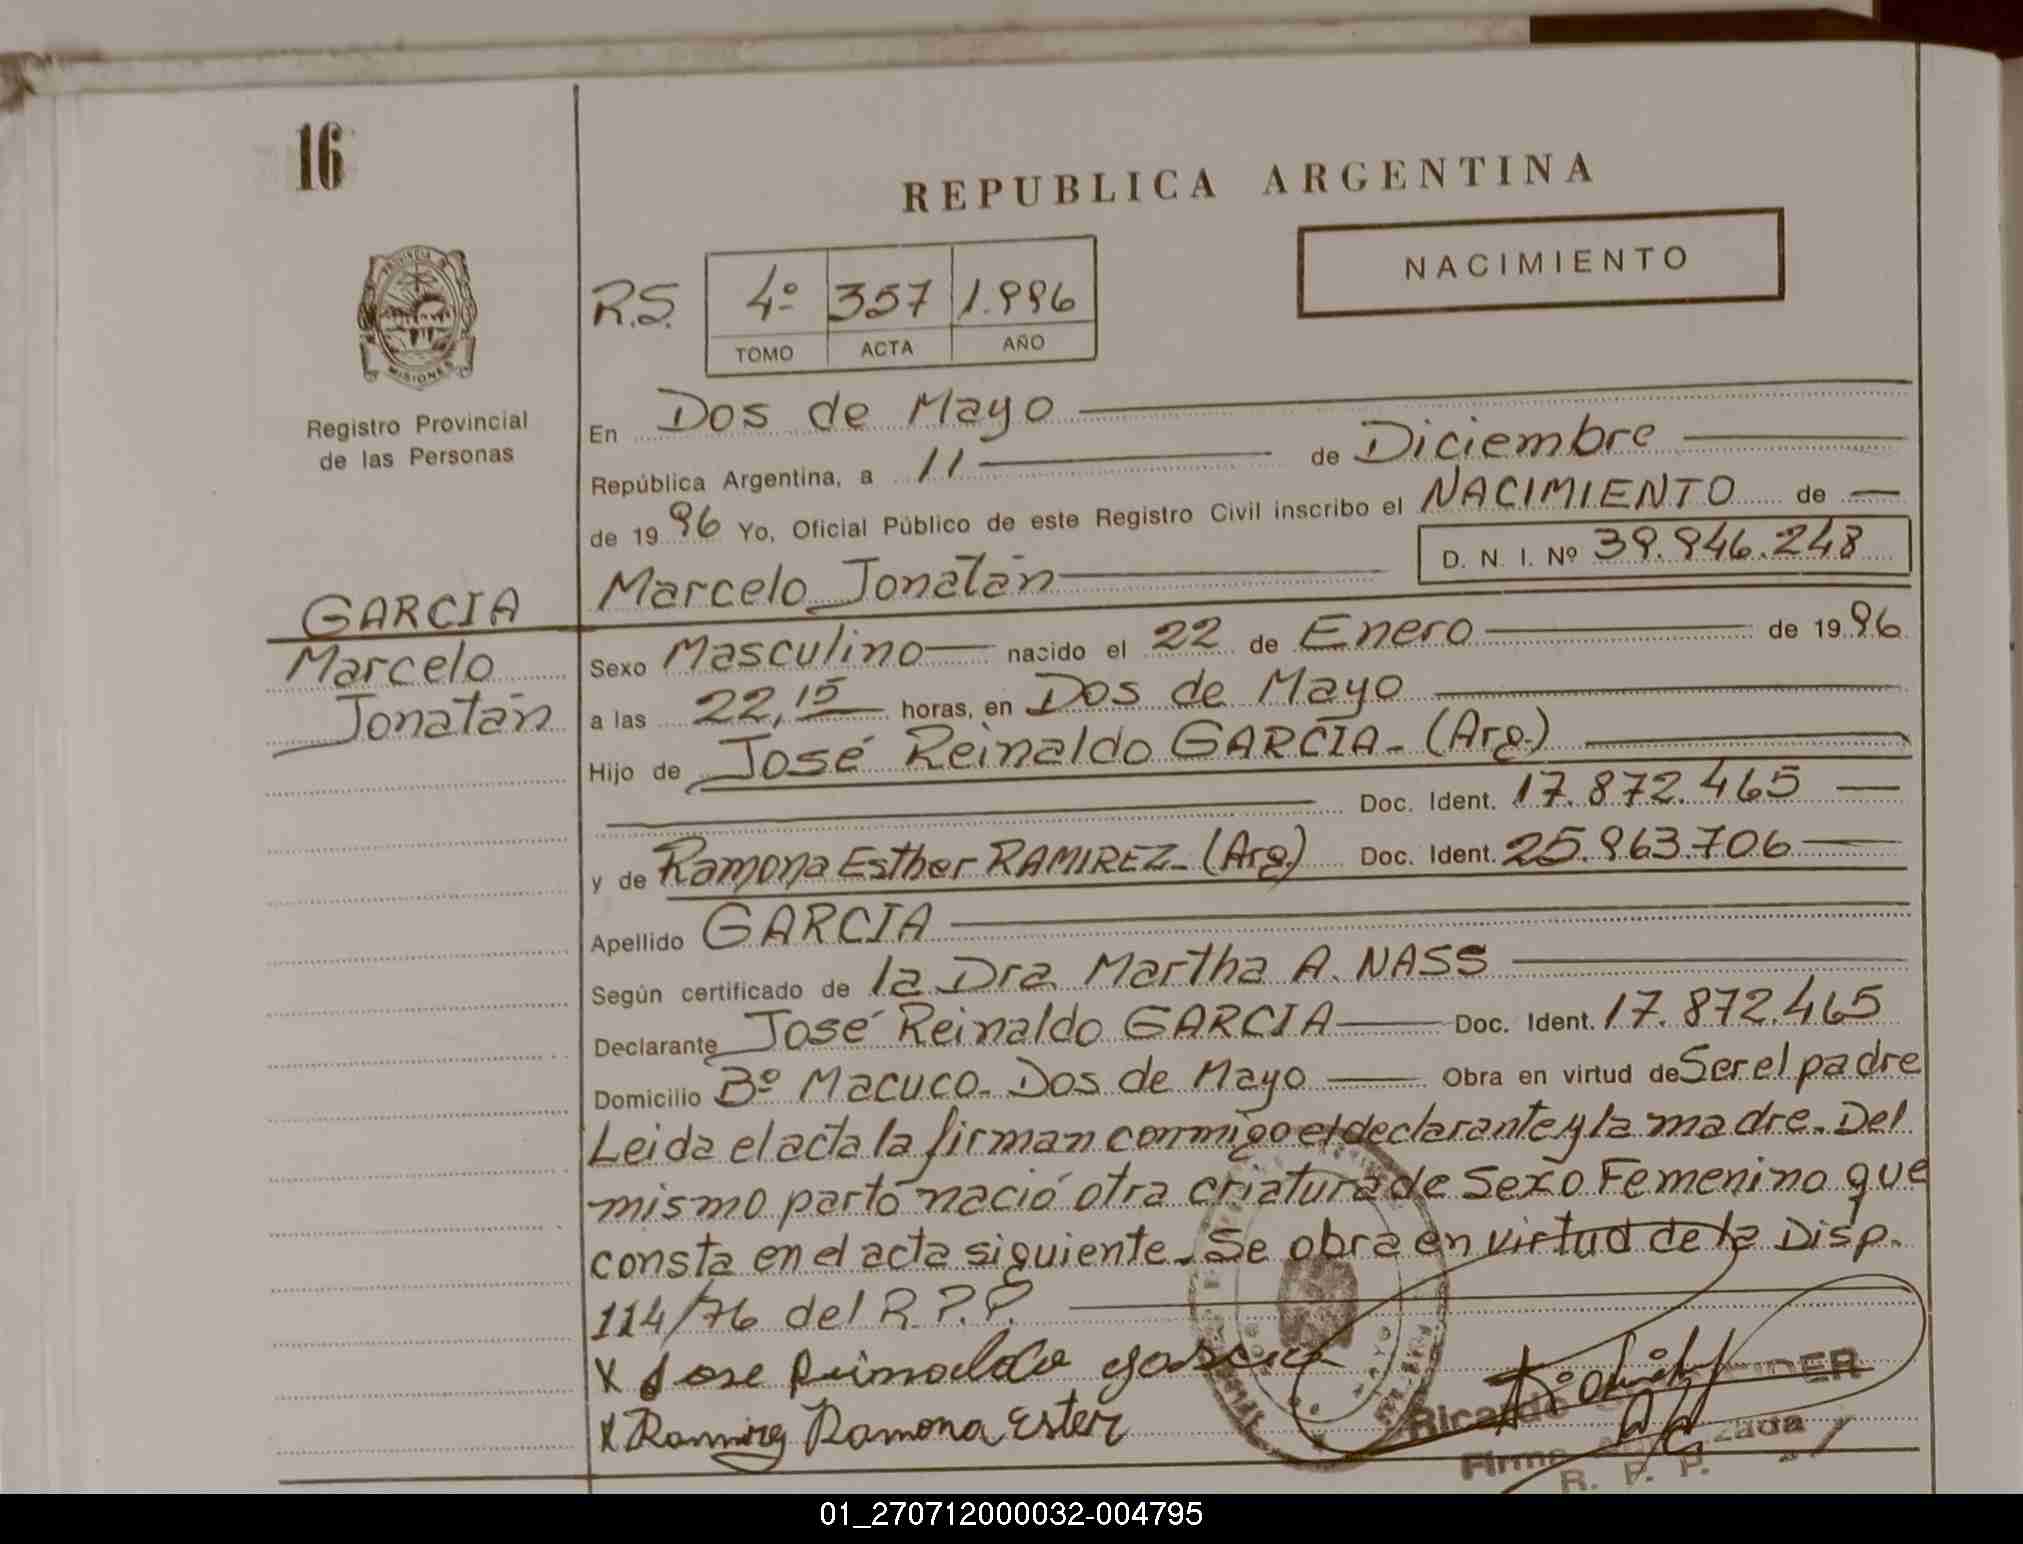 16
REPUBLICA ARGENTINA
NACIMIENTO
PROVINCIA
MISIONES
Registro Provincial
de las Personas
R.S. 4º 357 1.996
TOMO ACTA AÑO
En Dos de Mayo
República Argentina, a 11 de Diciembre
de 19 96 Yo, Oficial Público de este Registro Civil inscribo el NACIMIENTO de
D. N. I. Nº 39.946.248
Marcelo Jonatán
GARCIA
Marcelo
Jonatán
Sexo Masculino nacido el 22 de Enero de 19 96
a las 22,15 horas, en Dos de Mayo
Hijo de José Reinaldo GARCIA - (Arg.)
Doc. Ident. 17.872.465
y de Ramona Esther RAMIREZ - (Arg.) Doc. Ident. 25.963.706
Apellido GARCIA
Según certificado de la Dra Martha A. NASS
Declarante José Reinaldo GARCIA Doc. Ident. 17.872.465
Domicilio Bº Macuco - Dos de Mayo Obra en virtud de Ser el padre
Leida el acta la firman conmigo el declarante y la madre. Del
mismo parto nació otra criatura de Sexo Femenino que
consta en el acta siguiente. Se obra en virtud de la Disp.
114/76 del R.P.P.
X Jose Reinaldo garcia
X Ramirez Ramona Ester
Ricardo
Firma
R. P. P.
01_270712000032-004795